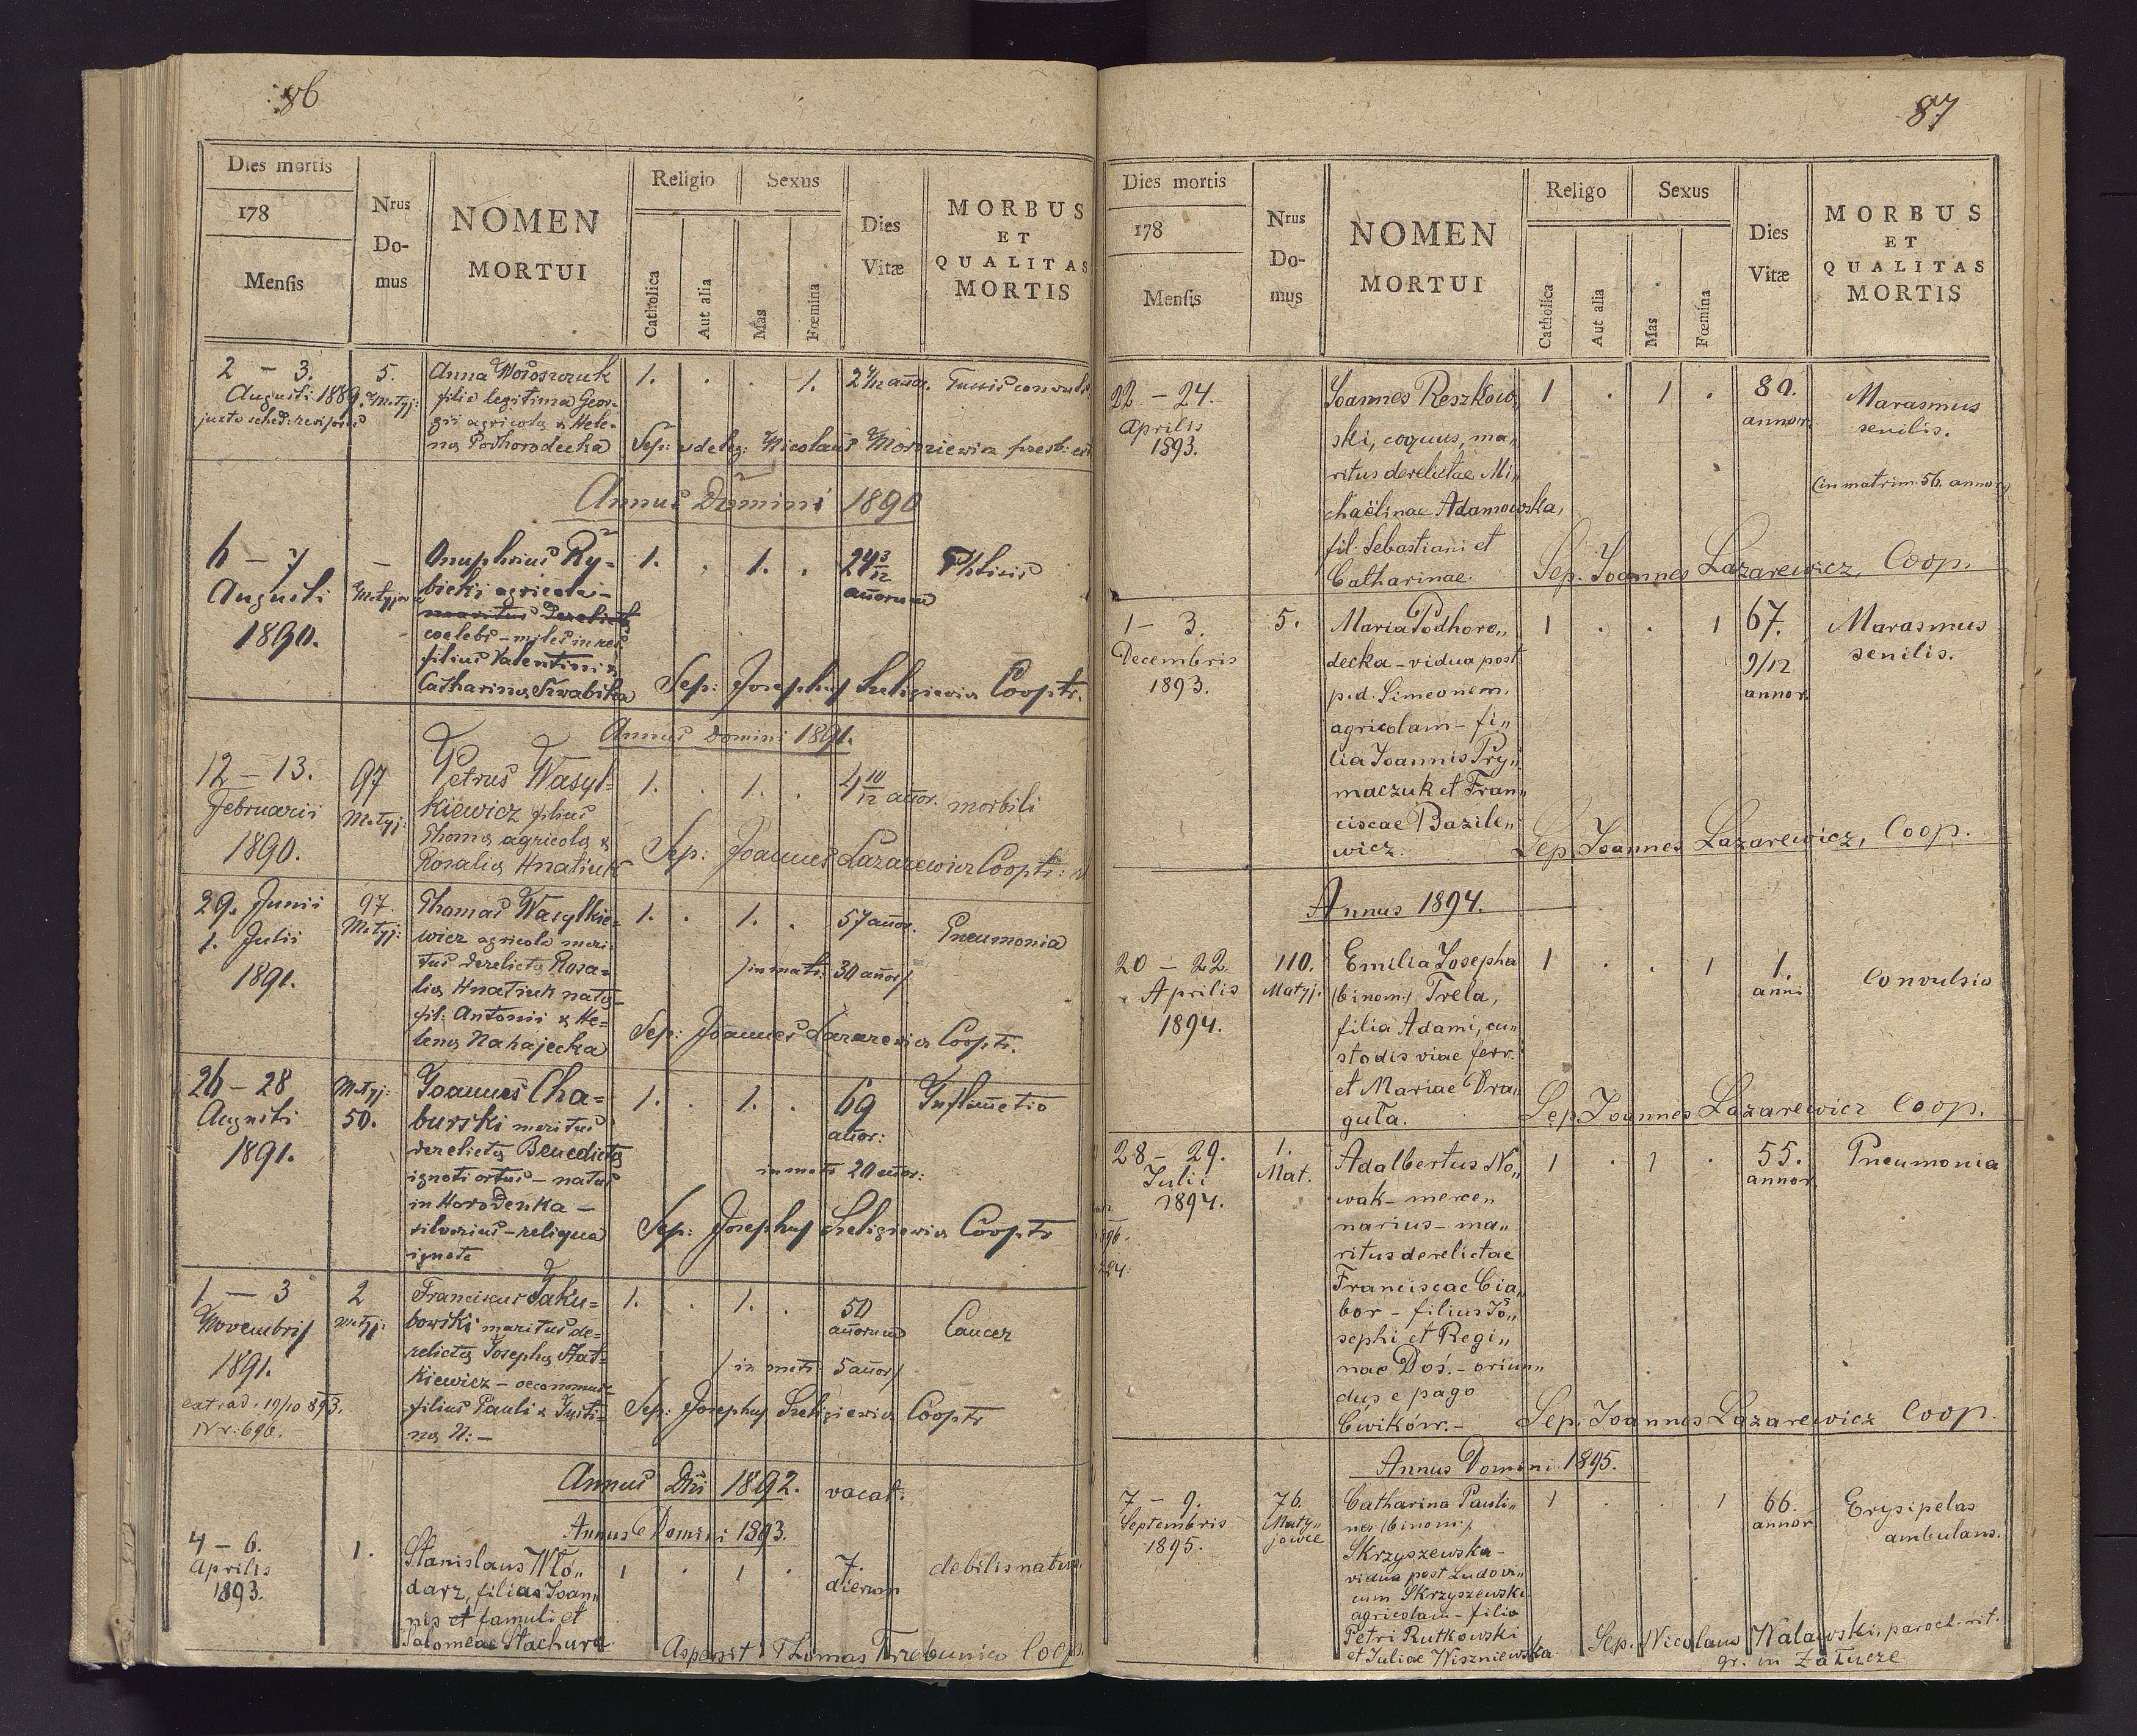 86
Dies mortis
178
Mensis
Nrus
Do-
mus
NOMEN
MORTUI
Religio
Catholica
Aut alia
Sexus
Mas
Fœmina
Dies
Vitæ
MORBUS
ET
QUALITAS
MORTIS
2 - 3.
Augusti 1889.
5.
Matyj:
Anna Wołoszczuk
filia legitima Geor-
gii agricola & Hele-
na Podhorodecka
1. . . 1.
annor.
Tussis
Sep: Nicolaus presb:
Annus Domini 1890
6 - 7
Augusti
1890.
-
Onuphrius Ry-
bicki agricola -
maritus derelicta
coelebs - miles in
filius Valentini &
Catharina Skrabika
1. . 1. .
24 3/12
annorum
Phtisis
Sep: Josephus Szeligiewicz Cooptr.
Annus Domini 1891.
12 - 13.
Februarii
1890.
97
Matyj:
Petrus Wasyl=
kiewicz filius
Thoma agricola &
Rosalia Hnatiuk
1. . 1. .
4 10/12 annor.
morbili
Sep: Joannes Lazarewicz Cooptr:
29. Junii
1. Julii
1891.
97.
Matyj:
Thomas Wasylkie=
wicz agricola mari
tus derelicta Rosa=
lia Hnatiuk nata
fil: Antonii & He=
lena Nahajecka
1. . 1. .
57 annor.
Pneumonia
/in matr: 30 annor/
Sep: Joannes Lazarewicz Cooptr.
26 - 28
Augusti
1891.
Matyj:
50.
Joannes Cha=
burski maritus
derelicta Benedicta
ignoti ortus - natus
in Horodenka -
silvarius - reliqua
ignota
1. . 1. .
69
annor:
Inflammatio
in matr 20 annor:
Sep: Josephus Szeligiewicz Cooptr
1 - 3
Novembris
1891.
extrad. 19/10 893.
Nr: 696.
2
Matyj:
Franciscus Jaku=
bowski maritus de=
relicta Josepha
kiewicz - oeconomus
filius Pauli & Justi=
na N: -
1. . 1. .
50
annorum
Cancer
/ in matr 5 annor/
Sep: Josephus Szeligiewicz Cooptr
Annus Dni 1892. vacat.
Annus Domini 1893.
4 - 6.
Aprilis
1893.
1.
Stanislaus Wło„
darz, filius Joan„
nis et famuli et
Salomeae Stachura
1 . 1 .
7.
dierum
debilis natus.
Aspersit Thomas Coop.
87
Dies mortis
178
Mensis
Nrus
Do-
mus
NOMEN
MORTUI
Religo
Catholica
Aut alia
Sexus
Mas
Fœmina
Dies
Vitæ
MORBUS
ET
QUALITAS
MORTIS
22 - 24.
Aprilis
1893.
Joannes Reszkow„
ski, coquus, ma„
ritus derelictae Mi„
chaëlinae Adamowska,
fil. Sebastiani et
Catharinae.
1 . 1 .
80.
annor.
Marasmus
senilis.
(in matrim. 56. annor)
Sep. Joannes Lazarewicz, Coop.
1 - 3.
Decembris
1893.
5.
Maria Podhoro„
decka - vidua post
p.d. Simeonem,
agricolam - fi„
lia Joannis Pry„
maczuk et Fran„
ciscae Bazile„
wicz.
1 . . 1
67.
9/12
annor.
Marasmus
senilis.
Sep. Joannes Lazarewicz, Coop.
Annus 1894.
20 - 22.
Aprilis
1894.
110.
Matyj.
Emilia Josepha
(binom.) Trela,
filia Adami, cu„
stodis viae ferr.
et Mariae Dra„
guła.
1 . . 1
1.
anni
Convulsio
Sep. Joannes Lazarewicz Coop.
28 - 29.
Julii
1894.
1.
Mat.
Adalbertus No„
wak - merce„
narius - ma„
ritus derelictae
Franciscae Cia„
bor - filius Jo„
sephi et Regi„
nae Doś. - oriun„
dus e pago
Ćwików. -
1 . 1 .
55.
annor.
Pneumonia
Sep. Joannes Lazarewicz Coop.
Annus Domini 1895.
7 - 9.
Septembris
1895.
76.
Maty„
jowce
Catharina Pauli„
na (binom.)
Skrzyszewska -
vidua post Ludovi„
cum Skrzyszewski
agricolam - filia
Petri Rutkowski
et Juliae Wiszniewska
1 . . 1
66.
annor.
Erysipelas
ambulans.
Sep. Nicolaus Walawski, paroch. rit.
gr. in Załucze